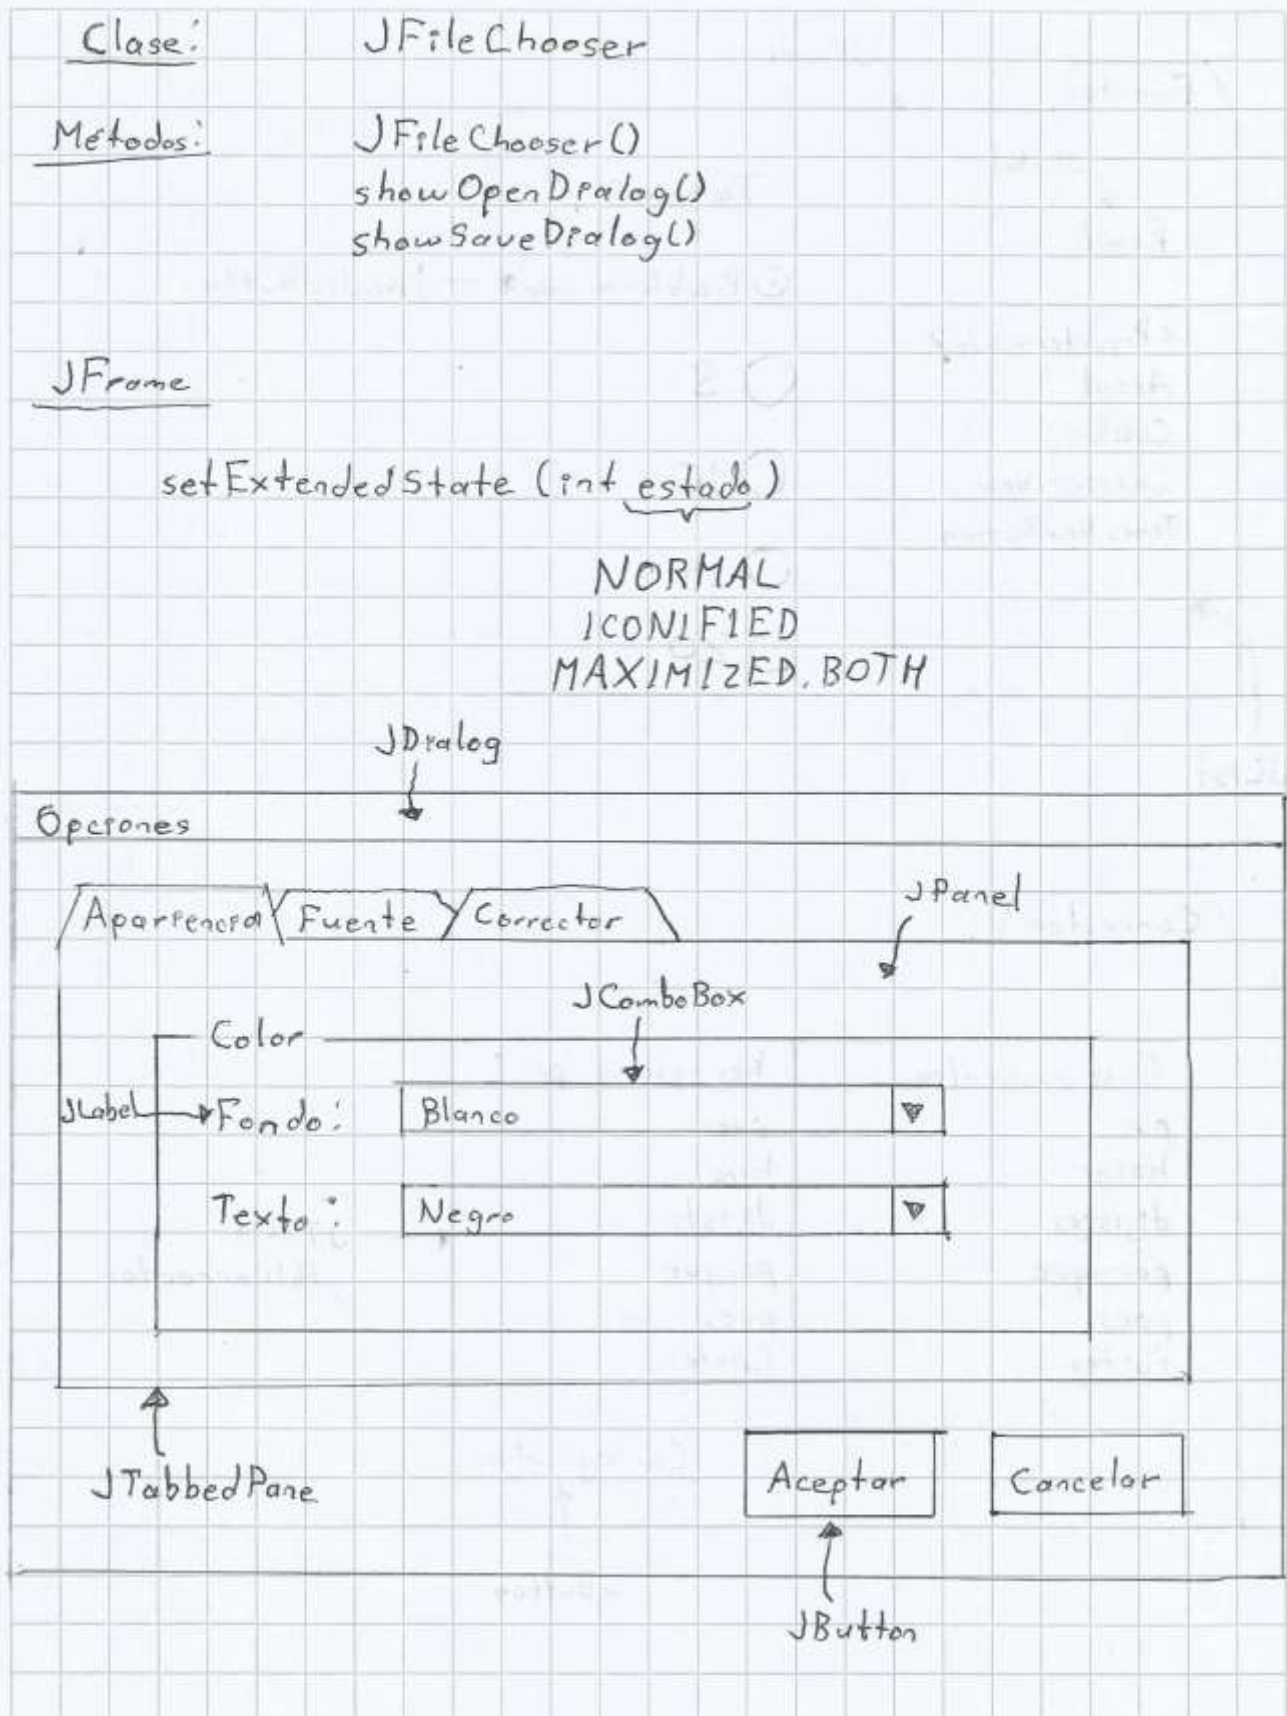 Clase: JFileChooser
Métodos: JFileChooser()
showOpenDialog()
showSaveDialog()
JFrame
setExtendedState (int estado)
NORMAL
ICONIFIED
MAXIMIZED.BOTH
JDialog
Opciones
Apariencia Fuente Corrector
JPanel
JComboBox
Color
JLabel Fondo: Blanco
Texto: Negro
JTabbedPane
Aceptar Cancelar
JButton